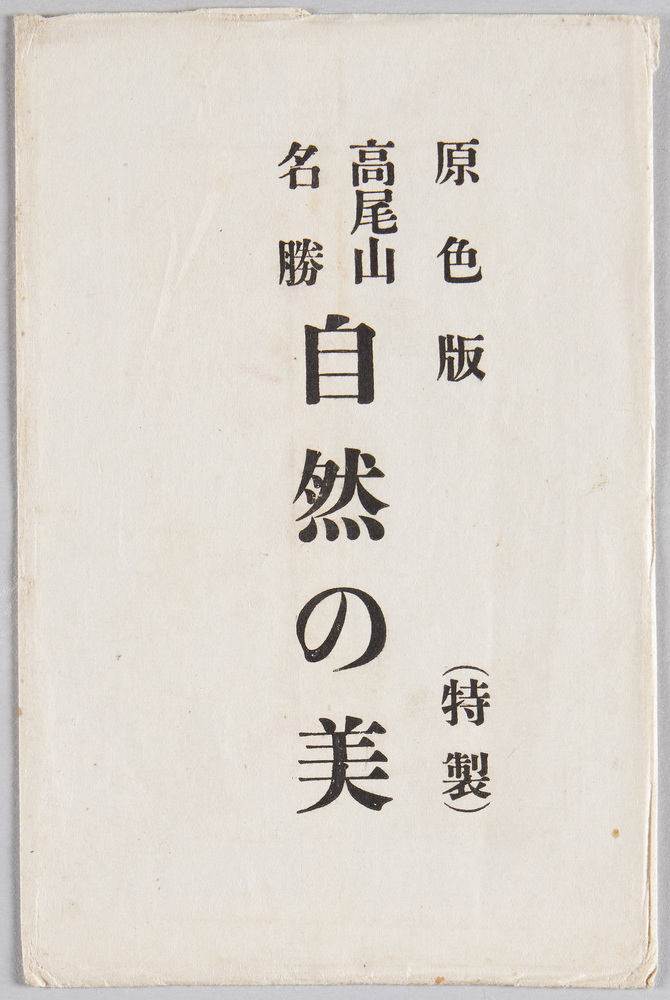 原色版（特製）
高尾山
名勝
自然の美